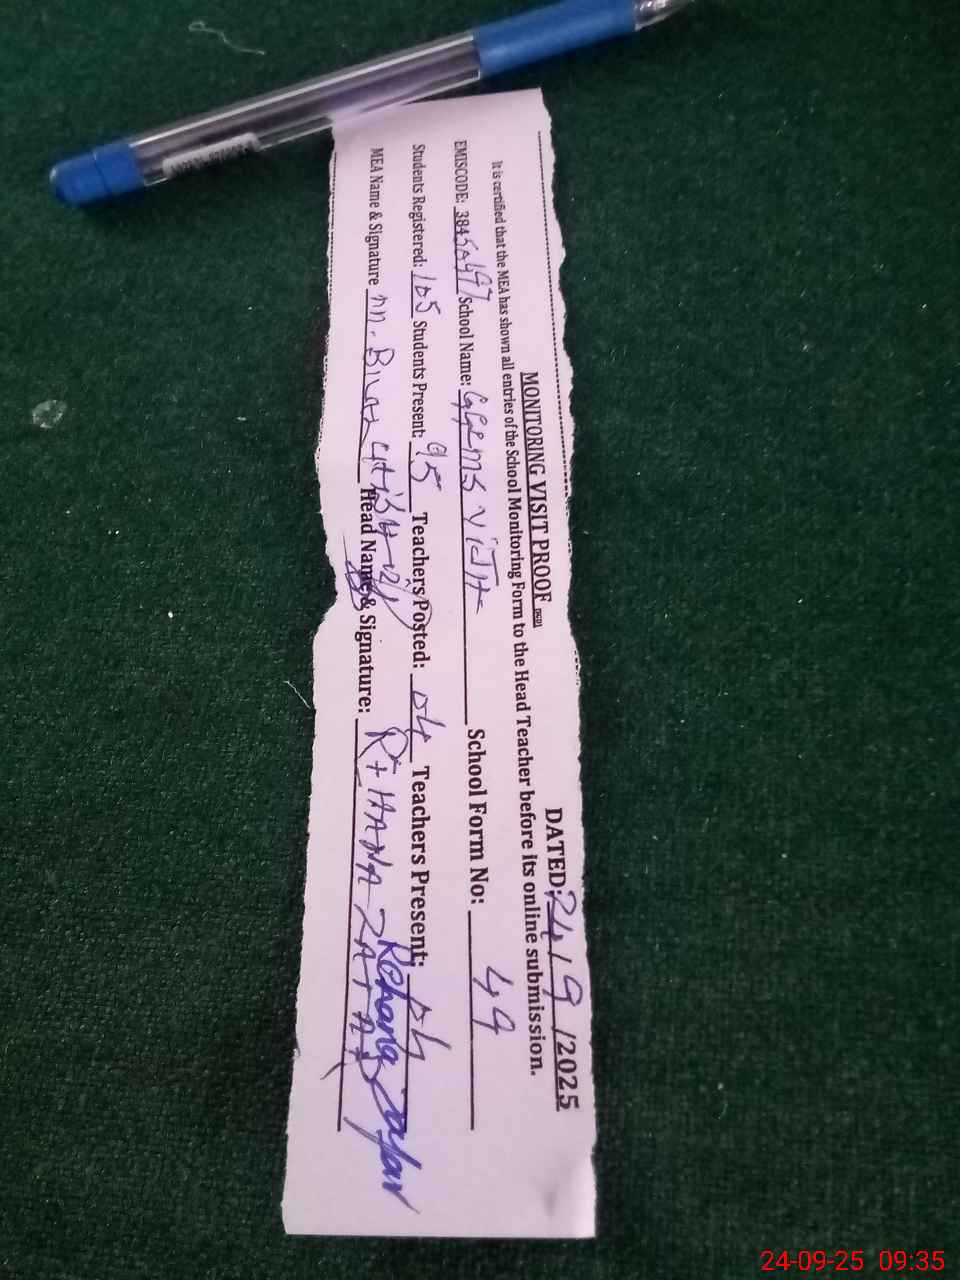 MONITORING VISIT PROOF DATED: 24/9/2025
It is certified that the MEA has shown all entries of the School Monitoring Form to the Head Teacher before its online submission.
EMISCODE: 38450497 School Name: School Form No: 49
Students Registered: 105 Students Present: 95 Teachers Posted: 04 Teachers Present: 04
MEA Name & Signature Head Name & Signature: Rehana Zafar
24-09-25 09:35